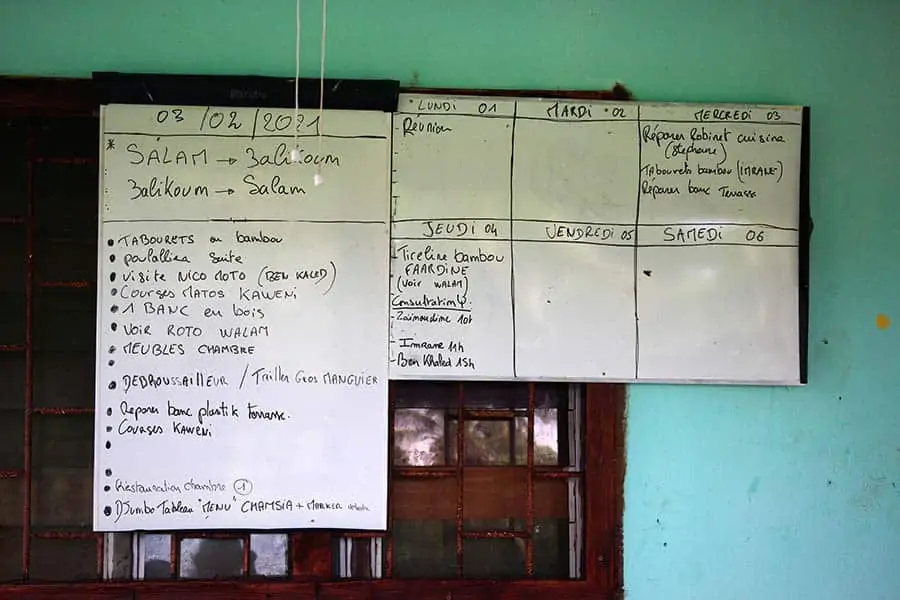 03/02/2021
* SALAM → 3alikoum
3alikoum → Salam
• TABOURETS en bambou
• poulailler suite
• visite NICO MOTO (BEN KALED)
• COURSES MATOS KAWENI
• 1 BANC en bois
• VOIR ROTO WALAM
• MEUBLES CHAMBRE
• DEBROUSSAILLEUR / Tailler Gros MANGUIER
• Reparer banc plastik terrasse.
• Courses KAWENI
• Restauration chambre 1
• DJumbo Tableau "MENU" CHAMSIA + MARKER
LUNDI 01
- Réunion
MARDI 02
MERCREDI 03
Réparer Robinet cuisine
(Stephane)
Tabourets bambou (IMRANE)
Réparer banc Terrasse
JEUDI 04
- Tireline bambou
FAARDINE
(voir WALAM)
Consultation Ψ
- Zaïnoudine 10h
- Imrane 11h
- Ben Khaled 15h
VENDREDI 05
SAMEDI 06